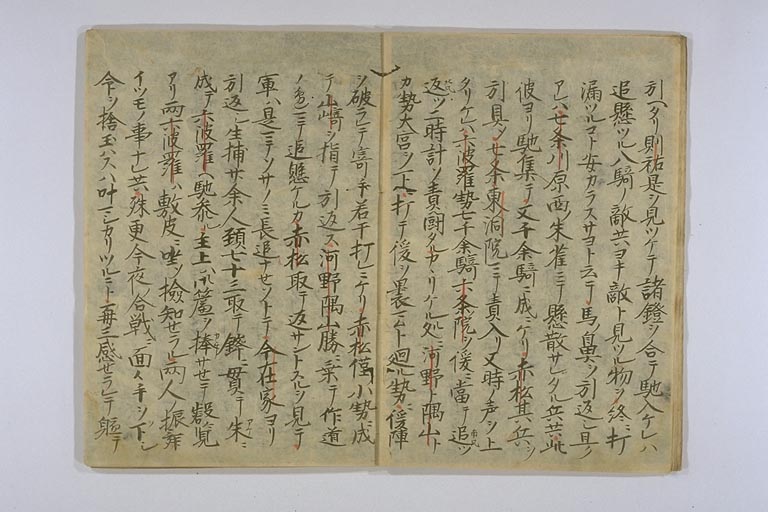 引ヘタリ則祐是ヲ見ツケテ諸鐙ヲ合テ馳入ケレハ
追懸ツル八騎ノ敵共ヨキ敵ト見ツル物ヲ終ニ打
漏ツルコト安カラスサヨト云テ馬ノ鼻ヲ引返ス旦ク
アレハ七条川原西朱雀ニテ懸散サレタル兵共此
彼ヨリ馳集テ又千余騎ニ成ニケリ赤松其兵ヲ
引具メ七条東洞院ニテ責入リ又時ノ声ヲ上
タリケレハ六波羅勢七千余騎六条院ヲ後ニ當テ追ツ
返ツ二時計ソ責闘タルカヽリケル処ニ河野ト陶山ト
カ勢大宮ヲ下ニ打テ後ヲ裏ムト廻ル勢ニ後陣
ヲ破ラレテ寄手若干打レニケリ赤松僅ノ小勢ニ成
テ山崎ヲ指テ引返ス河野陶山勝ニ乗テ作道
ノ邊ニテ追懸ケルカ赤松取テ返サントスルヲ見テ
軍ハ是ニテソサノミ長追ナセソトテ今在家ヨリ
引返シ生捕廿余人頚七十三取テ鋒ニ貫テ朱ニ
成テ六波羅ヘ馳参ル主上ハ御簾ヲ捲セテ叡覧
アリ両六波羅ハ敷皮ニ坐メ撿知セラル両人振舞
イツモノ事ナレ共殊更今夜ノ合戦ニ面々手ヲ下シ
命ヲ捨玉ハスハ叶マシカリツルニト再三感セラレテ軈テ